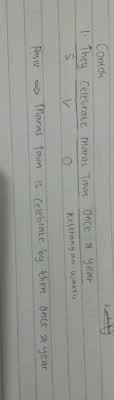 Contoh
1. They celebrate Maras Taun once a year
S V O keterangan waktu
Pasiv ⇒ Maras taun is celebrate by them once a year